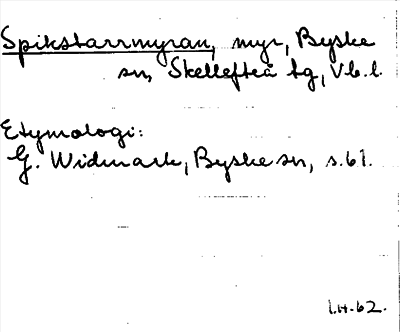 Spikstarrmyran, myr, Byske
sn, Skellefteå tg, Vb. l.
Etymologi:
G. Widmark, Byske sn, s. 61.
I.H. 62.